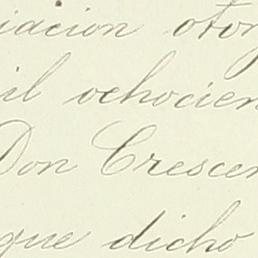 iacion otorg
il ochocien
Don Crescen
que dicho